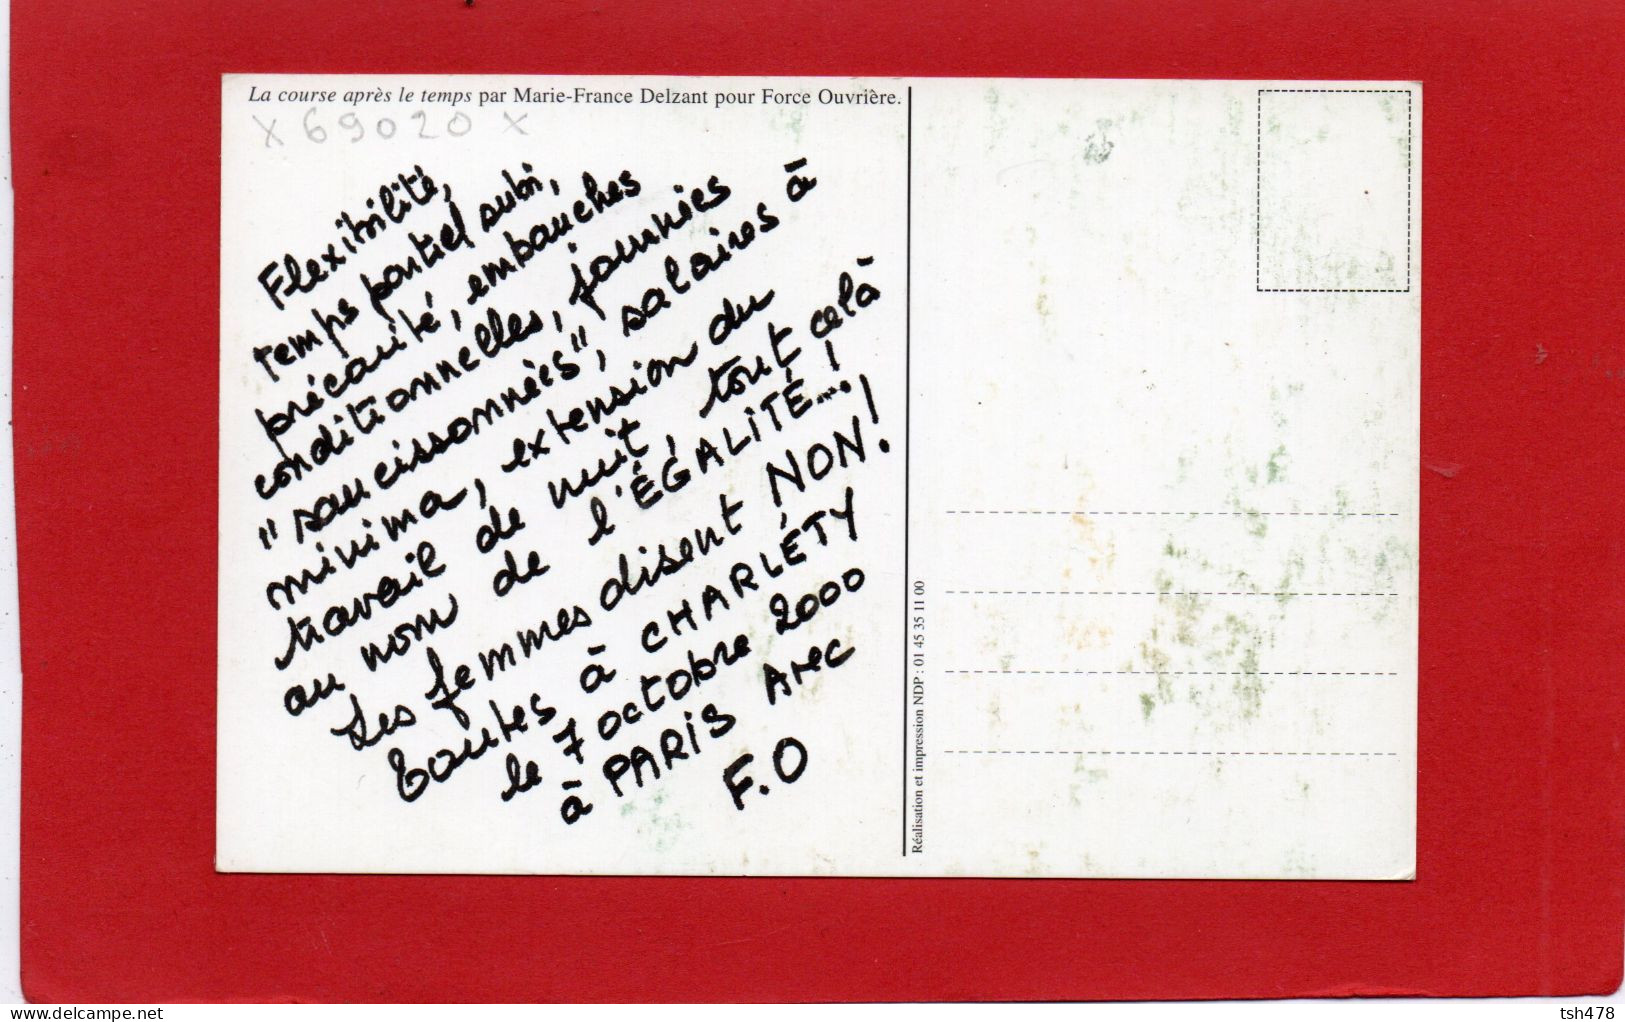 La course après le temps par Marie-France Delzant pour Force Ouvrière.
x 69020 x
Flexibilité,
temps partiel subi,
précarité, embauches
conditionnelles, journées
"saucissonnées", salaires à
minima, extension du
travail de nuit, tout celà
au nom de l'ÉGALITÉ...!
Les femmes disent NON!
toutes à CHARLÉTY
le 7 octobre 2000
à PARIS AVEC
F.O
Réalisation et impression NDP : 01 45 35 11 00
www.delcampe.net
tsh478